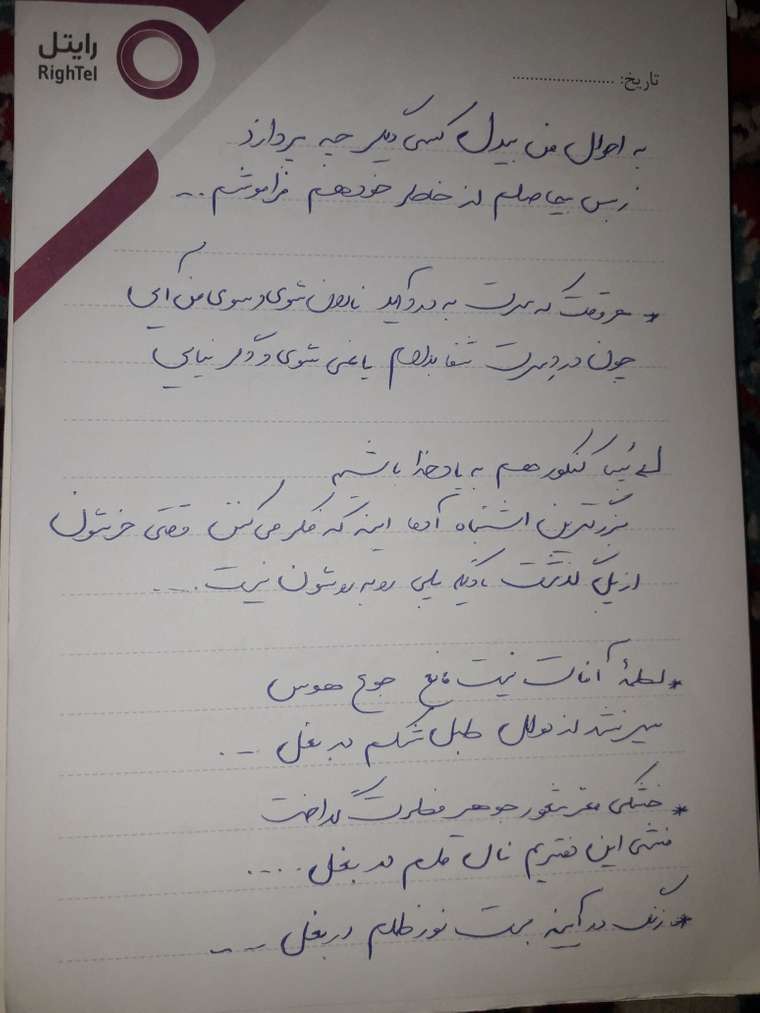 رایتل
RighTel
تاریخ: ......................
به احوال من بیدل کسی دیگر چه پردازد
ز بس بیحاصلم از خاطر خود هم فراموشم ...
* هر وقت که سرت به درد آید نالان شوی و سوی من آیی
چون درد سرت شفا بدادم یاغی شوی و دگر نیایی
کنکور هم به یاد خدا باشیم
بزرگترین اشتباه آدما اینه که فکر می کنن وقتی خرشون
از پل گذشت دیگه پلی روبه روشون نیست ....
* لطمهٔ آفات نیست مانع جوع هوس
سیر نشد از دهل طبل شکم در بغل ...
* خشکی مغز شعور جوهر فطرت گداخت
منشی این دفتریم نال قلم در بغل ....
* زنگ در آینه بست نور ظلم در بغل ...